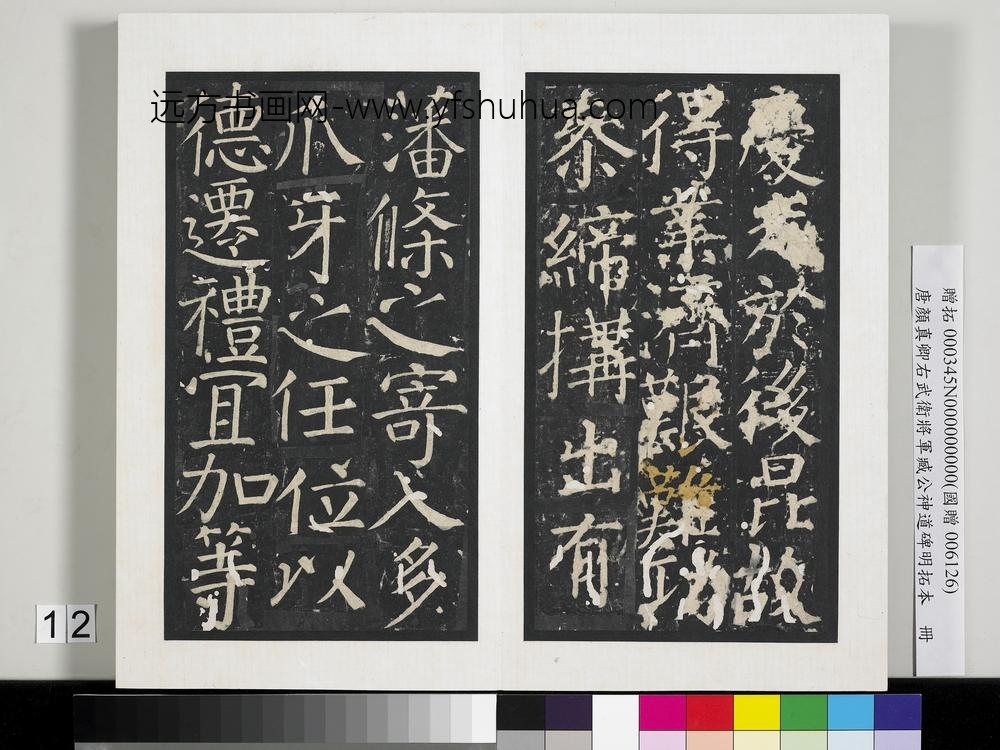 慶於後昆故
得業濟艱難功
叅締搆出有
藩條之寄入多
爪牙之任位以
德遷禮宜加等
远方书画网-www.yfshuhua.com
贈拓 000345N000000000(國贈 006126)
唐顏真卿右武衛將軍臧公神道碑明拓本 冊
12